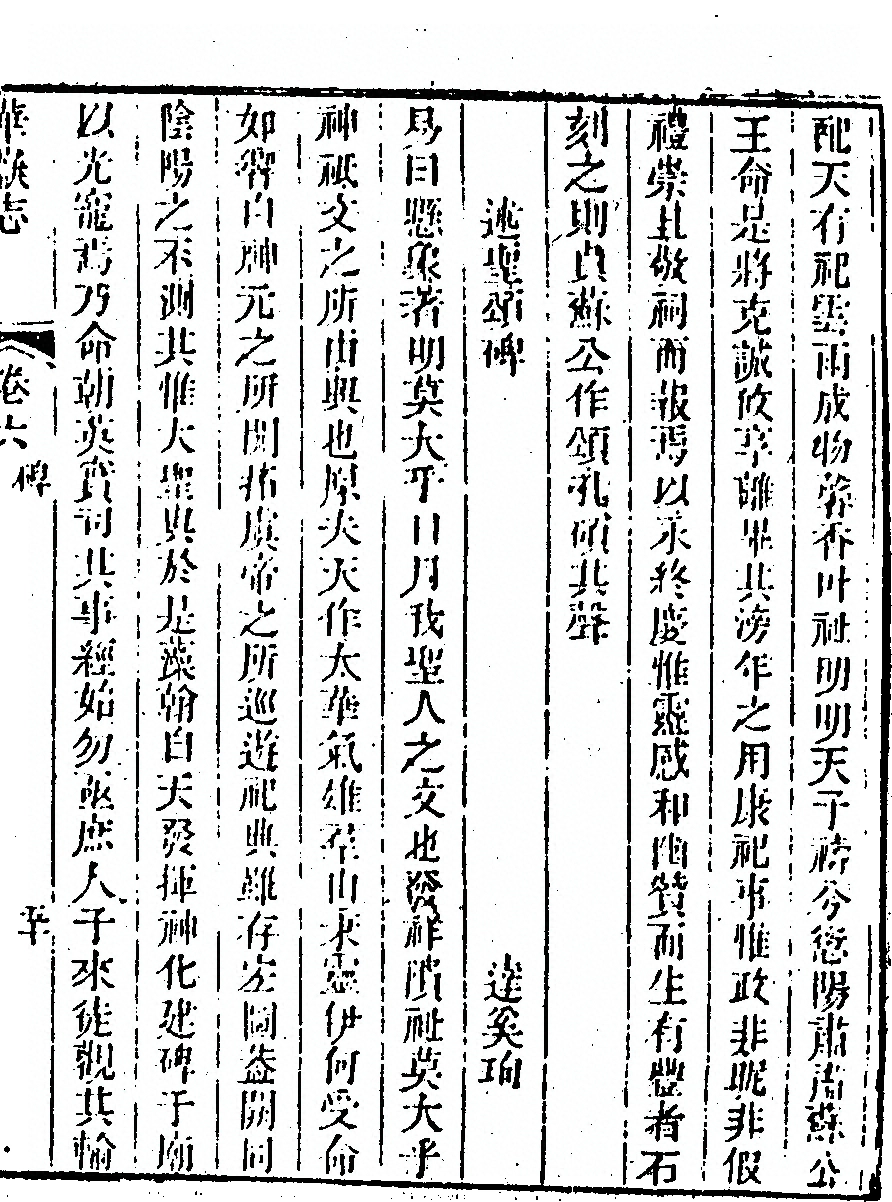 配天有祀雲雨成物馨香卟祉明明天子禱兮愆陽肅肅蘇公
王命是將克誠攸享離畢其滂年之用康祀事惟政非昵非假
禮崇且敬祠而報焉以永終慶惟靈感和幽贊而生有豐者石
刻之則貞蘇公作頌孔碩其聲
述聖頌碑 達奚珣
易曰懸象著明莫大乎日月我聖人之文也發祥隤祉莫大乎
神祗文之所由興也原夫天作太華氣雄羣山秉靈伊何受命
如響白帝元之所開拓虞帝之所巡遊祀典雖存宏圖蓋闕同
陰陽之不測其惟大聖與於是藻翰自天發揮神化建碑于廟
以光寵焉乃命朝英賓司其事經始勿亟庶人子來徒觀其輪
華嶽志 卷六 碑 平